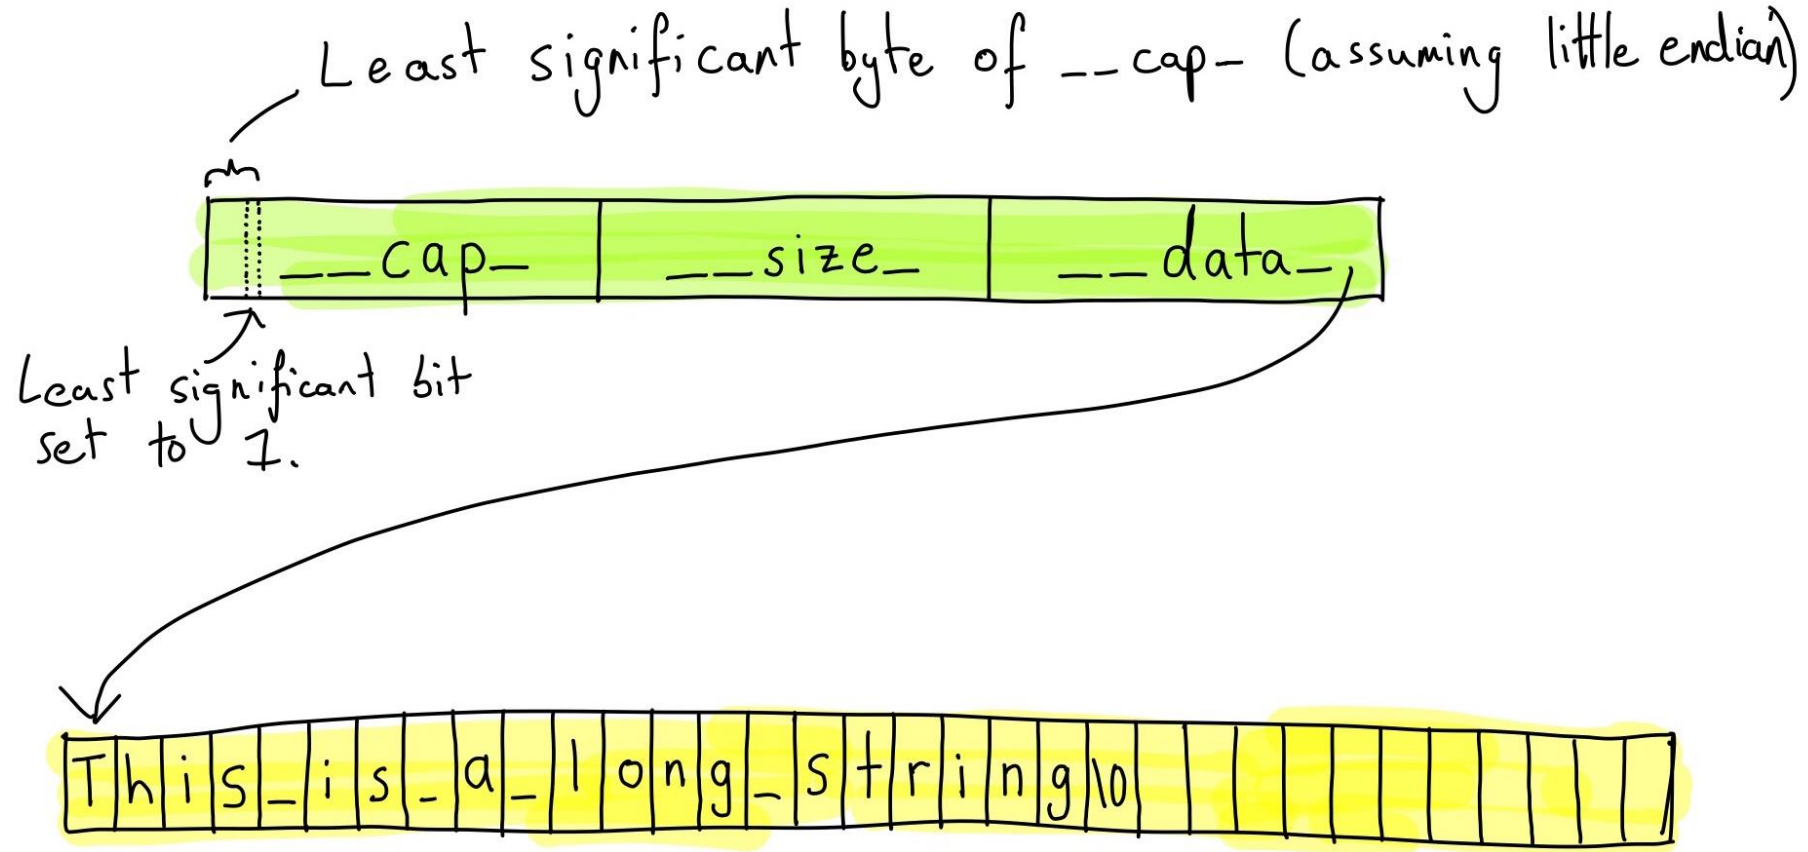 Least significant byte of __cap_ (assuming little endian)
__cap_ __size_ __data_
Least significant bit
set to 1.
This_is_a_long_string\0